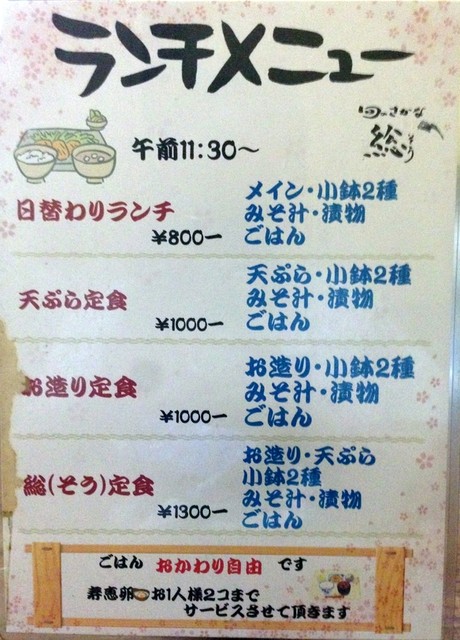 ランチメニュー
総
午前11:30～
日替わりランチ
¥800ー
メイン・小鉢2種
みそ汁・漬物
ごはん
天ぷら定食
¥1000ー
天ぷら・小鉢2種
みそ汁・漬物
ごはん
お造り定食
¥1000ー
お造り・小鉢2種
みそ汁・漬物
ごはん
総(そう)定食
¥1300ー
お造り・天ぷら
小鉢2種
みそ汁・漬物
ごはん
ごはん おかわり自由 です
寿恵卵 お1人様2コまで
サービスさせて頂きます